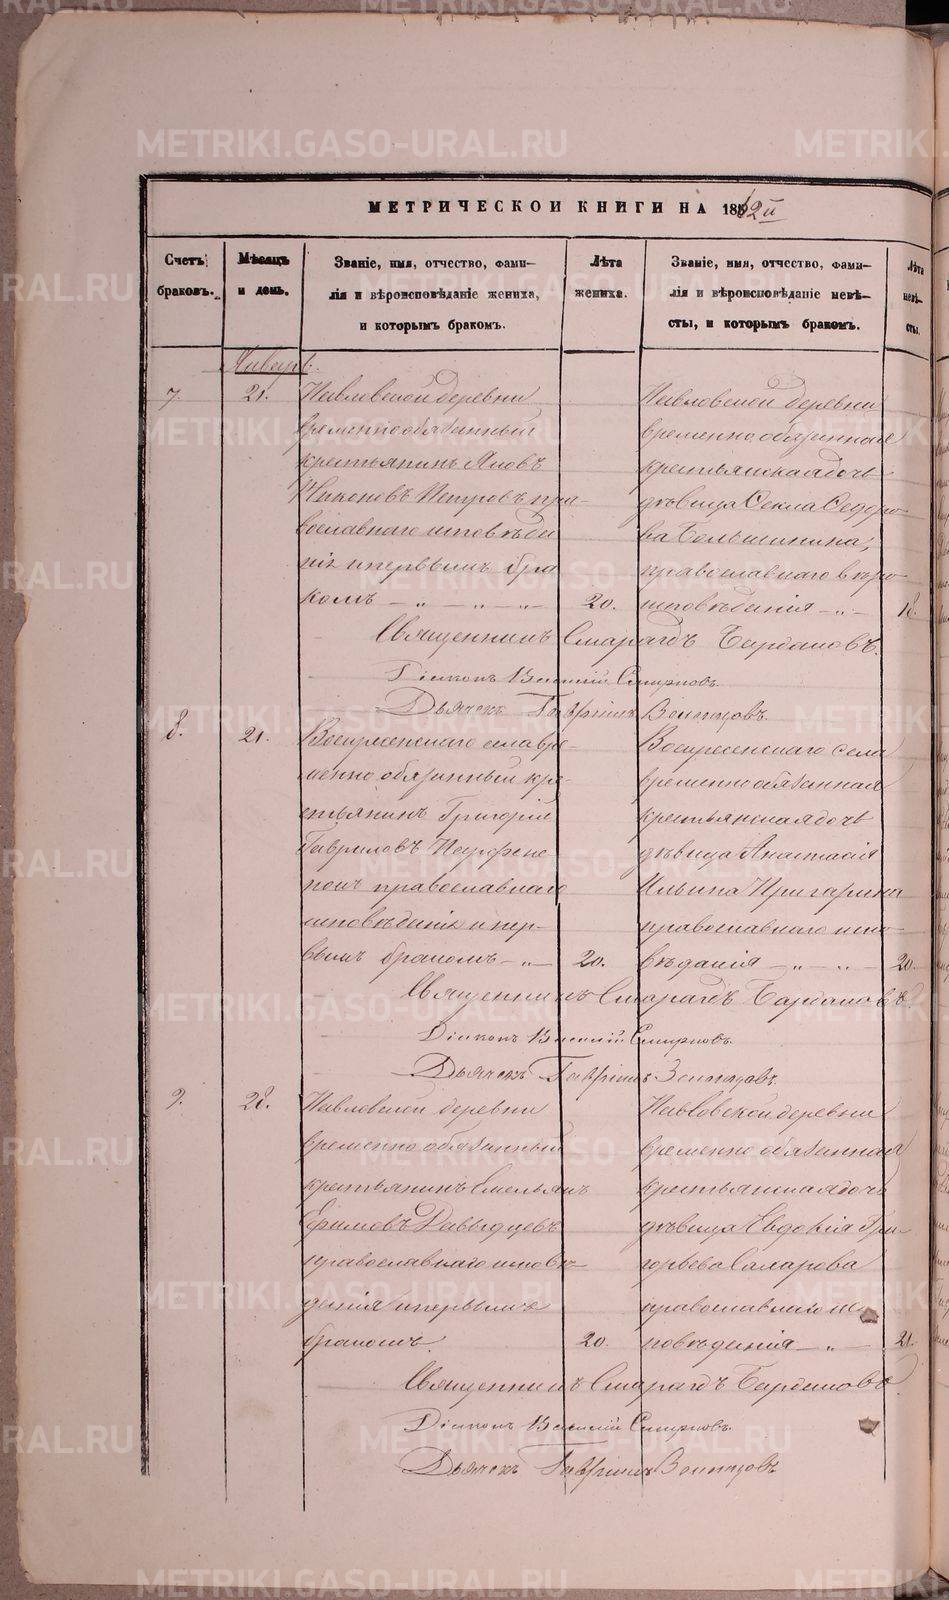 МЕТРИЧЕСКОЙ КНИГИ НА 1862й
Счетъ браковъ.
Мѣсяцъ и день.
Званіе, имя, отчество, фами-
лія и вѣроисповѣданіе жениха,
и которымъ бракомъ.
Лѣта
жениха.
Званіе, имя, отчество, фами-
лія и вѣроисповѣданіе невѣ-
сты, и которымъ бракомъ.
Лѣта
невѣ-
сты.
Январь.
7. 21.
Павловской деревни
временнообязанный
крестьянинъ Яковъ
Никоновъ Петровъ пра-
вославнаго исповѣда
нія и первымъ бра
комъ — „ — „ — „ — 20.
Павловской деревни
временно обязанная
крестьянская дочь
дѣвица Ѳекла Ѳедоро-
ва Большинина,
православнаго вѣро-
исповѣданія — „ — 18.
Священникъ Смарагдъ
Діаконъ Василій Смирновъ.
Дьячекъ Гавріилъ
8. 21.
Воскресенскаго села вре-
менно обязанный кре-
стьянинъ Григорій
Гавриловъ
православнаго
исповѣданія и пер-
вымъ бракомъ — „ — 20.
Воскресенскаго села
временно обязанная
крестьянская дочь
дѣвица Анастасія
Ильина Пригарина
православнаго испо-
вѣданія — „ — „ — 20.
Священникъ Смарагдъ
Діаконъ Василій Смирновъ.
Дьячекъ Гавріилъ
9. 28.
Павловской деревни
временно обязанный
крестьянинъ Емельянъ
Ефимовъ Давыдцевъ
православнаго исповѣ-
данія и первымъ
бракомъ. 20.
Павловской деревни
временно обязанная
крестьянская дочь
дѣвица Евдокія Гри-
горьева Санарова
православнаго ис
повѣданія — „ — 21.
Священникъ Смарагдъ
Діаконъ Василій Смирновъ.
Дьячекъ Гавріилъ
METRIKI.GASO-URAL.RU